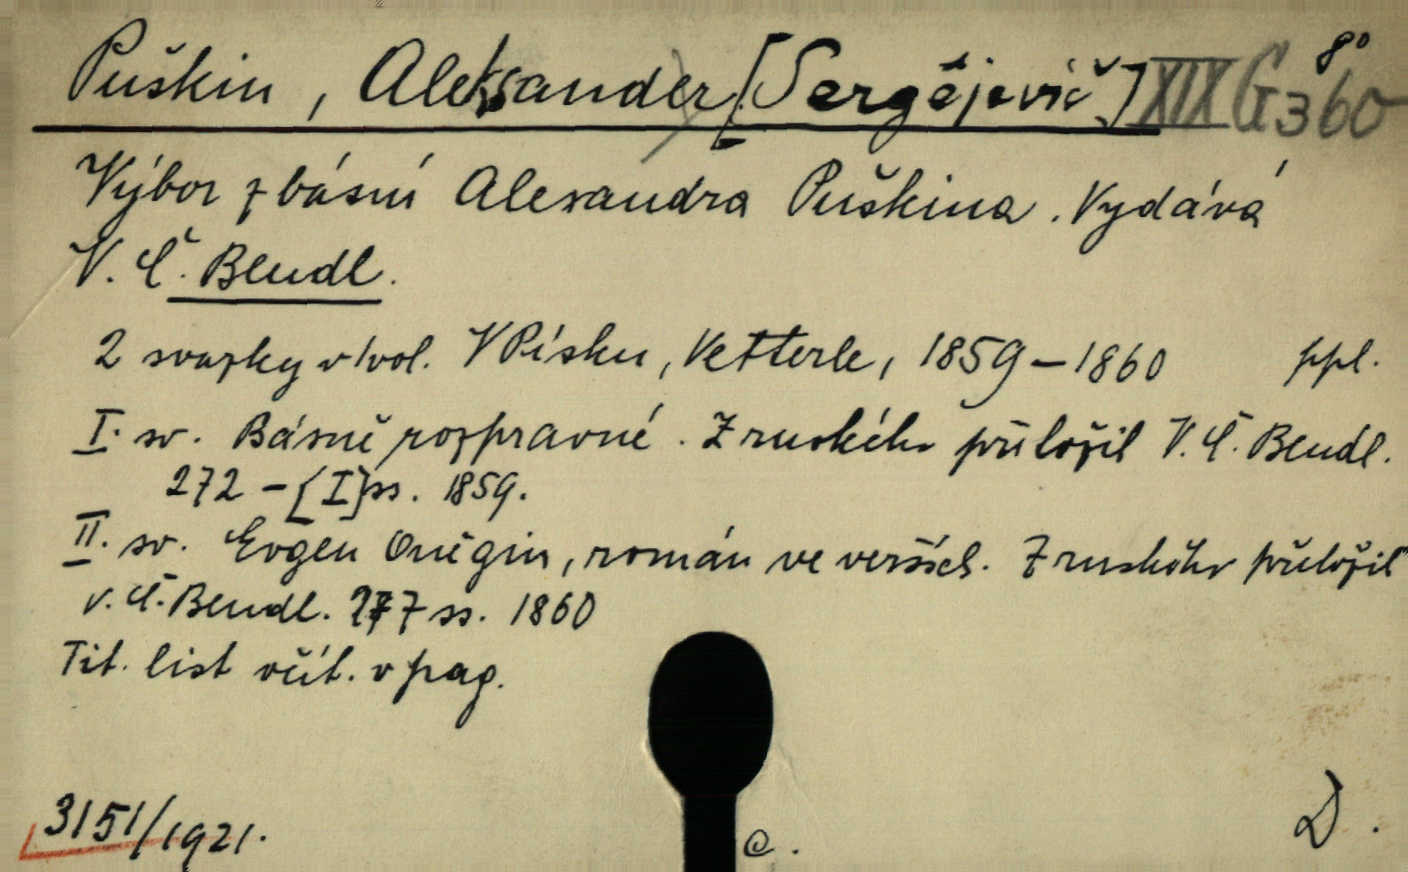 Puškin, Aleksander [Sergějevič] XIX G 360 8°
Výbor z básní Alexandra Puškina. Vydává
V. Č. Bendl.
2 svazky v 1 vol. V Písku, Vetterle, 1859-1860 ppl.
I. sv. Básně rozpravné. Z ruského přeložil V. Č. Bendl.
272 - [I] ss. 1859.
II. sv. Evgen Oněgin, román ve verších. Z ruského přeložil
V. Č. Bendl. 277 ss. 1860
Tit. list včít. v pag.
3151/1921. C. D.